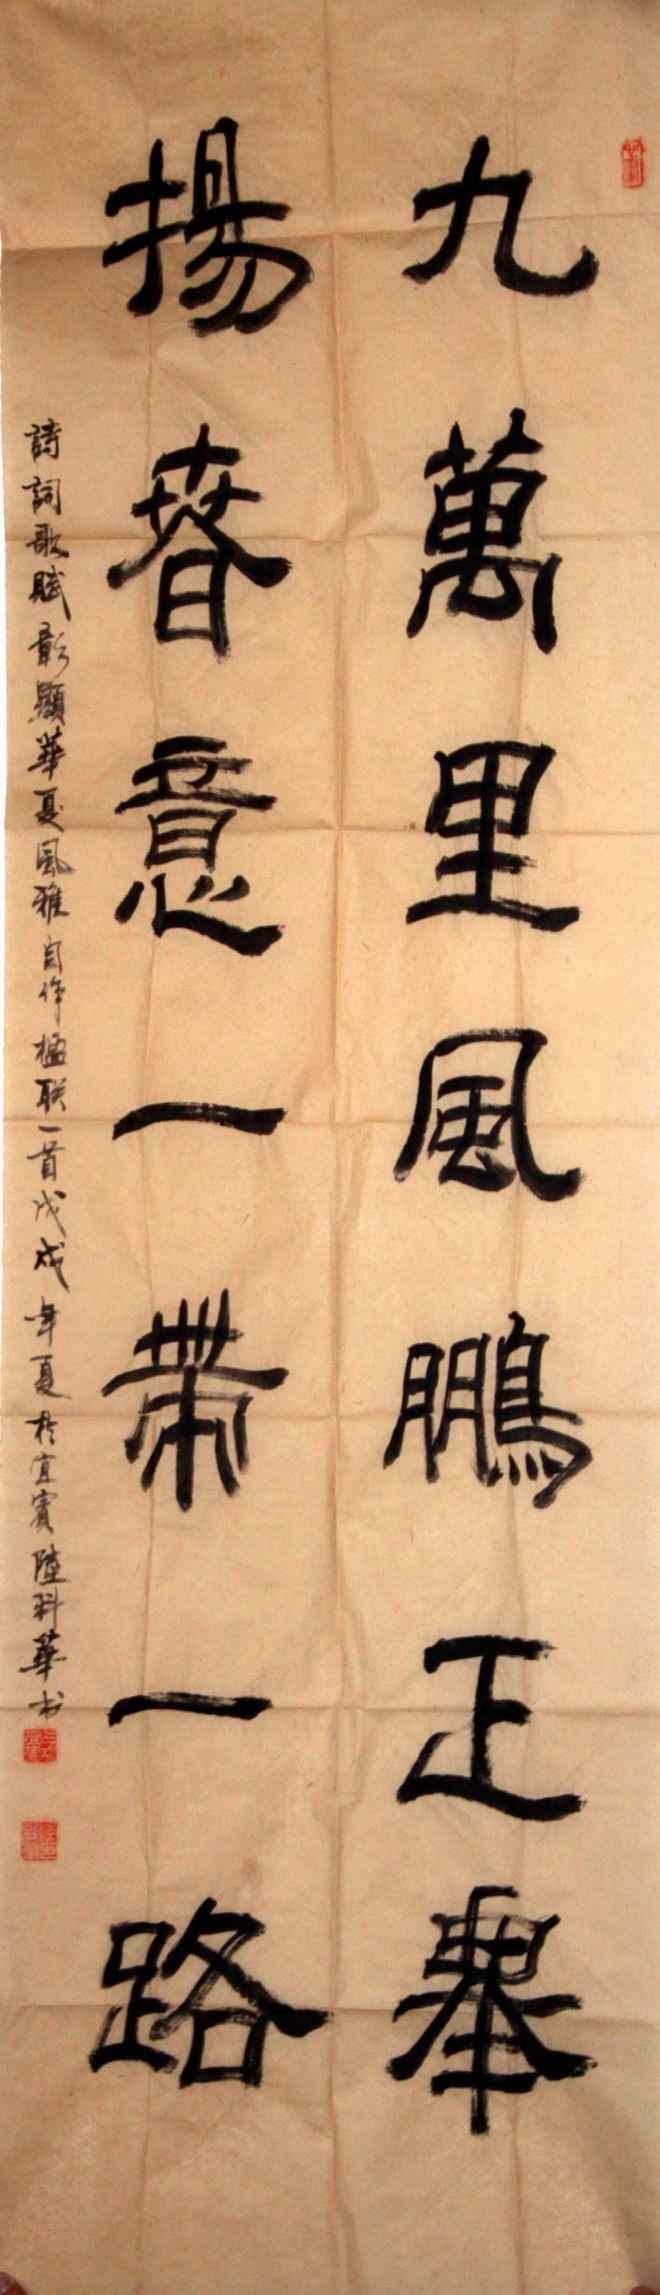 九萬里風鵬正舉
揚春意一帶一路
詩詞歌賦彰顯華夏風雅自作楹联一首戊戌年夏於宜賓陸科華书